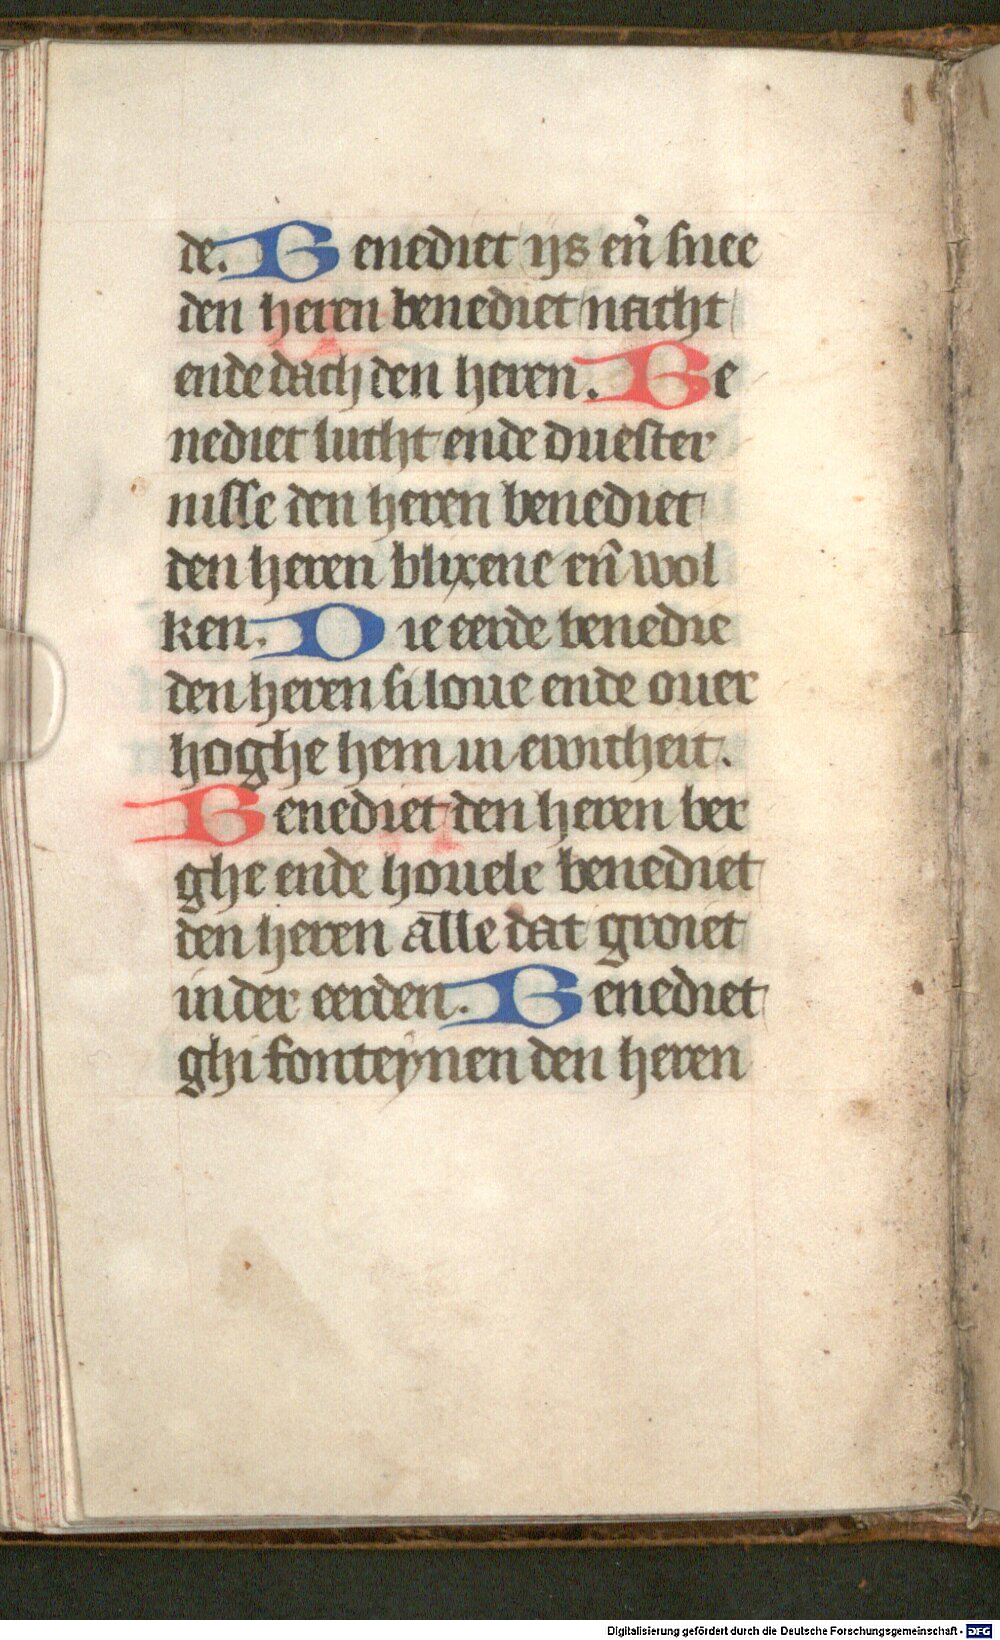 de. Benediet ijs en̄ snee
den heren benediet nacht
ende dach den heren. Be
nediet lucht ende duester
nisse den heren benediet
den heren blixene en̄ wol
ken. Die eerde benedie
den heren si loue ende ouer
hoghe hem in ewicheit.
Benediet den heren ber
ghe ende houele benediet
den heren alle dat groiet
in der eerden. Benediet
ghi fonteynen den heren
Digitalisierung gefördert durch die Deutsche Forschungsgemeinschaft - DFG